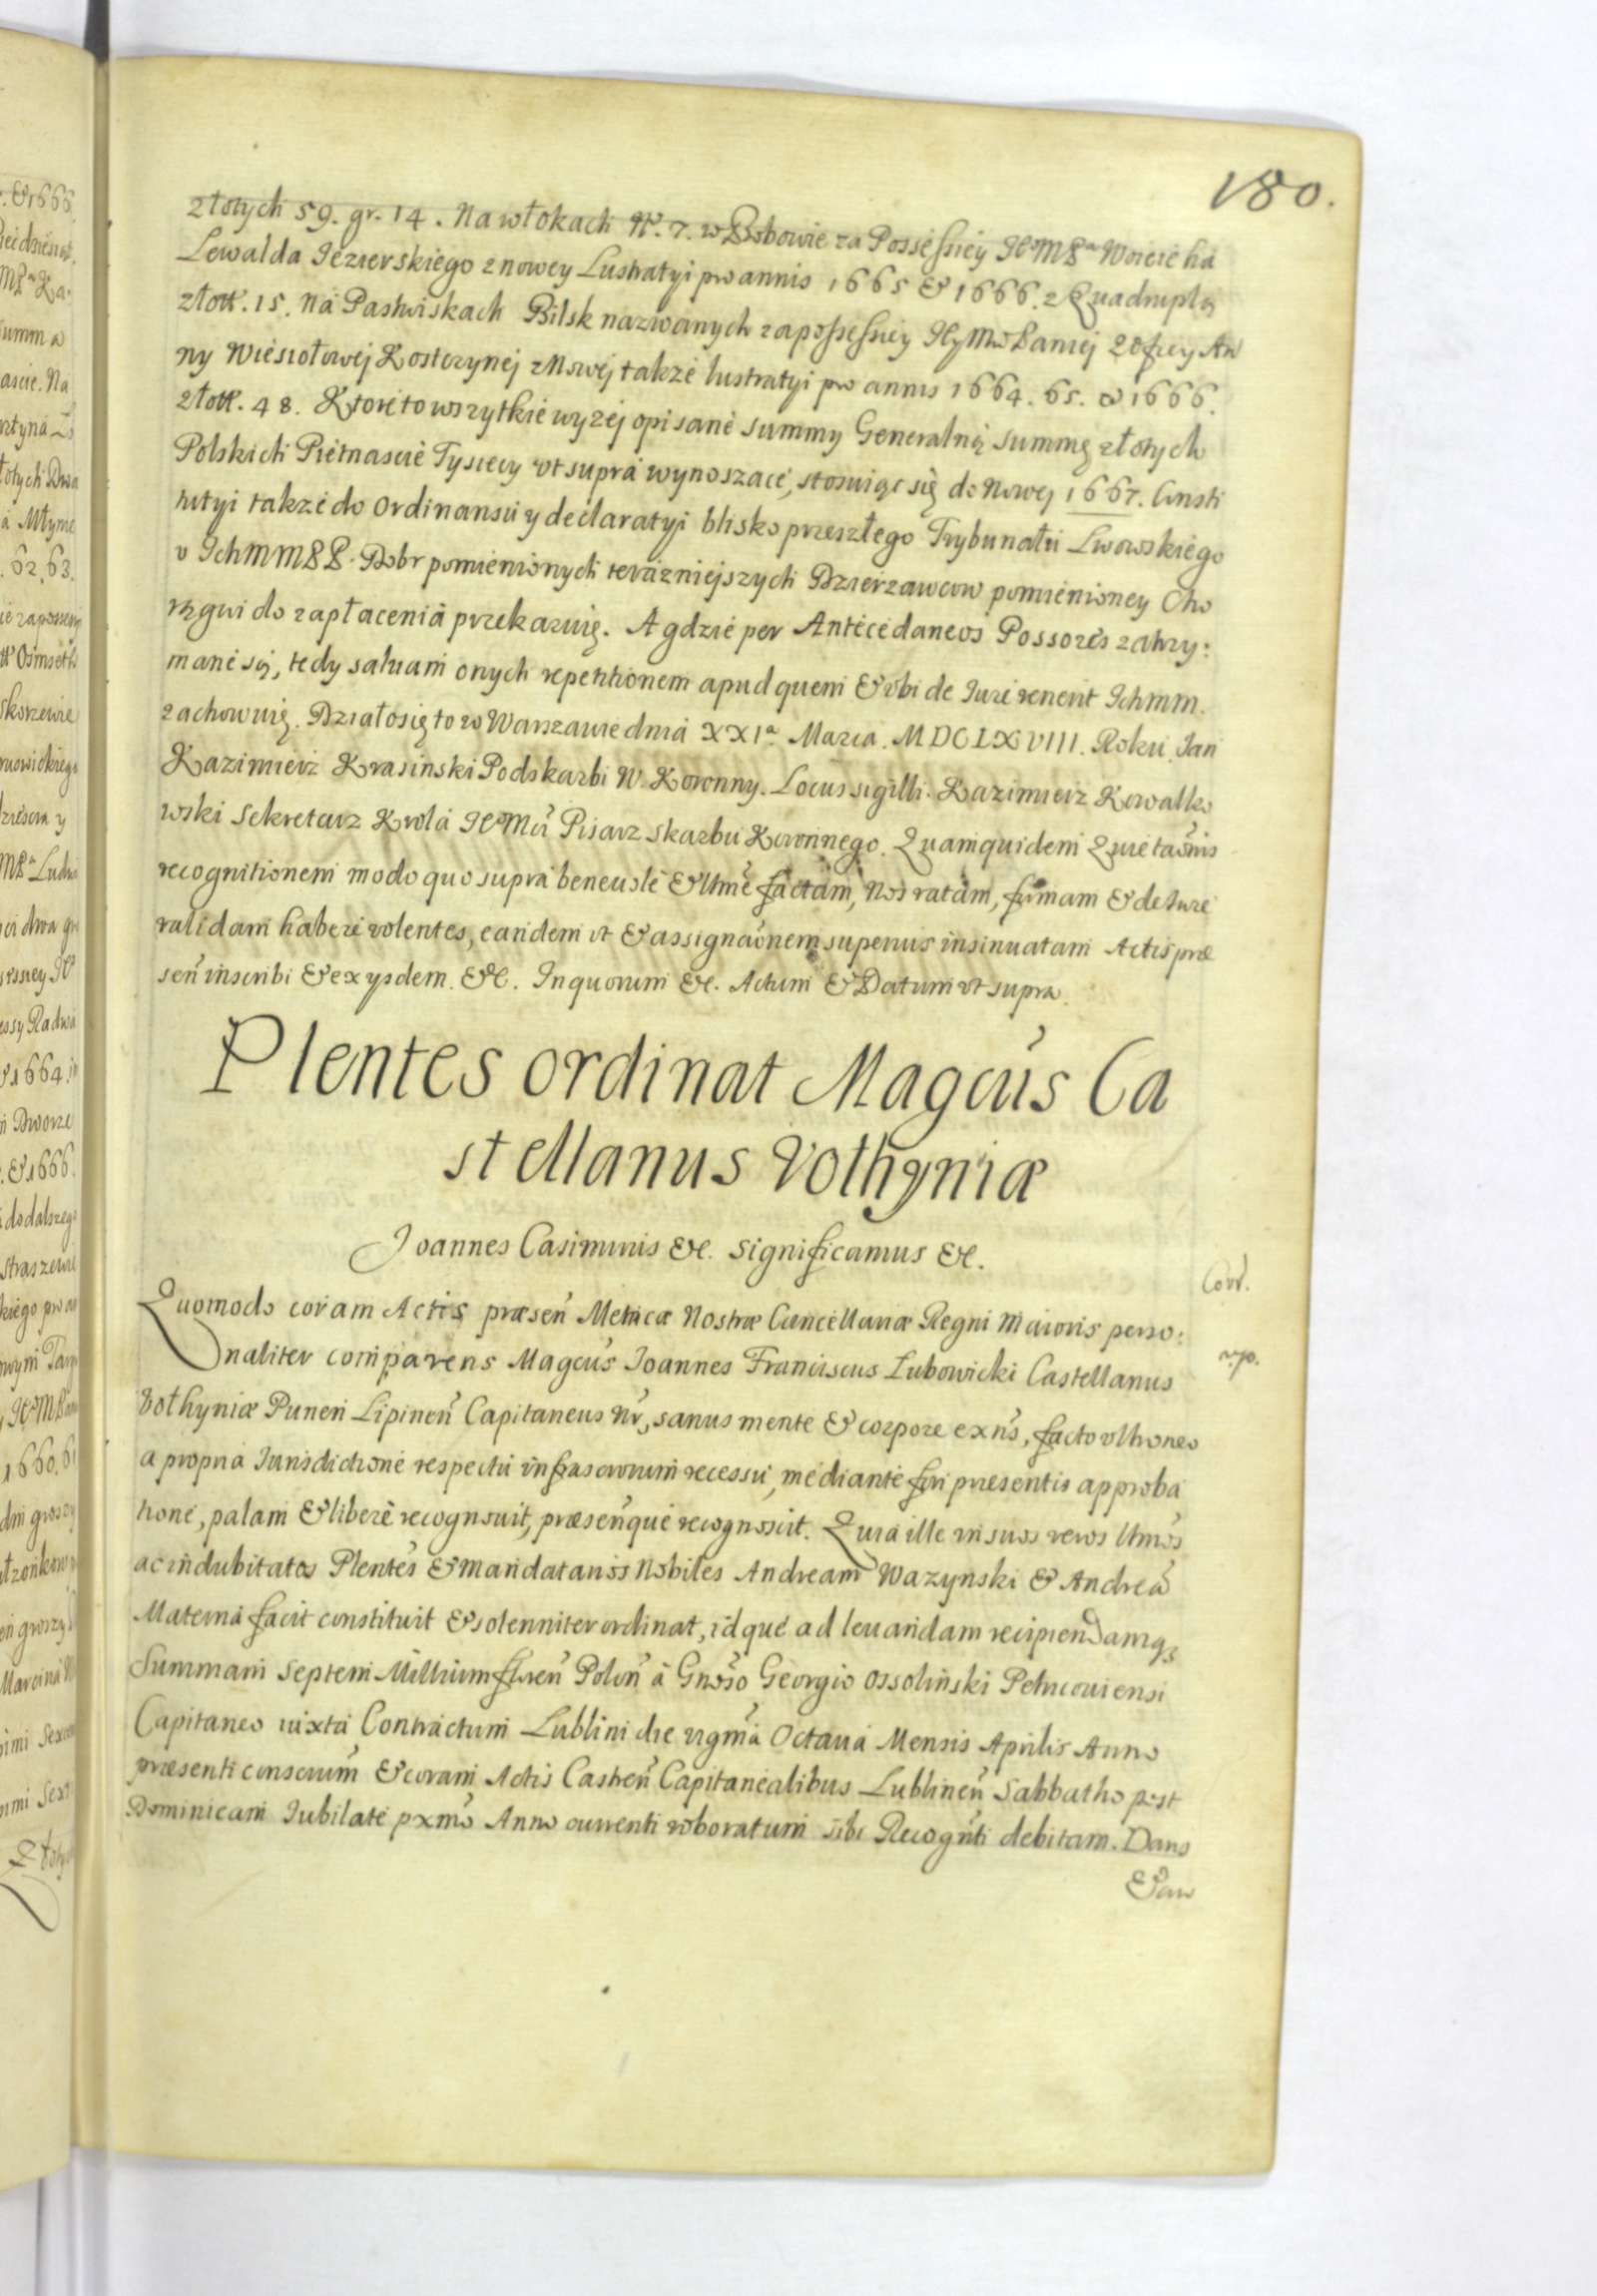 180.
złotych 59. gr. 14. Na włokach Nº. 7. w Bobowie za Possessiey JeºMPª Woiciecha
Lewalda Jezierskiego z nowey Lustratyi pro annis 1665 & 1666. z Quadruplą
złott. 15. Na Pastwiskach Bilsk nazwanych za possessiey JeyMw Paniej Zofiey An
ny Wiesiołowej Kostczynej z Nowej także lustratyi pro annis 1664. 65. & 1666.
złott. 48. Ktore to wszytkie wyżej opisane summy Generalną summę złotych
Polskich Pietnascie Tysiecy vt supra wynoszące, stosuiąc się do Nowej 1667. Consti
tutyi także do Ordinansu y declaratyi blisko przeszłego Trybunału Lwowskiego
v IchMMPP. Dobr pomienionych teraznieiszych Dzierzawcow pomienioney Cho
rągwi do zapłacenia przekazuię. A gdzie per Antecedaneos Possores zatrzy:
mane są, tedy saluam onych repetitionem apud quem & vbi de Iure venerit Ichmm.
zachowuię. Działo się to w Warszawie dnia XXIª. Marca. MDCLXVIII. Roku. Jan
Kazimierz Krasinski Podskarbi W. Koronny. Locus sigilli. Kazimierz Kowalko
wski Sekretarz Krola JeºMci Pisarz skarbu Koronnego. Quamquidem Quietaõnis
recognitionem modo quo supra beneuole & lltme factam, Nos ratam, firmam & de Iure
validam habere volentes, eandem vt & assignaõnem superius insinuatam Actis præ
señ inscribi & ex ysdem. &c. In quorum &c. Actum & Datum vt supra.
Plentes ordinat Magcus Ca
stellanus Vołhyniæ
Joannes Casimirus &c. Significamus &c.
Corr.
Quomodo coram Actis præseñ Metricæ Nostræ Cancellariæ Regni Maioris perso:
naliter comparens Magcus Joannes Franciscus Łubowicki Castellanus
Vołhyniæ Puneñ Lipineñ Capitaneus Nr, sanus mente & corpore exñs, facto vltroneo
a propria Iurisdictione respectu infrascorum recessu, mediante fori præsentis approba
tione, palam & libere recognouit, præseñque recognoscit. Quia ille in suos veros lltmos
ac indubitatos Plentes & Mandatarios Nobiles Andream Wazynski & Andreã
Materna facit constituit & solenniter ordinat, idque ad leuandam recipiendamq;
Summam Septem Millium floreñ Poloñ a Gnoso Georgio Ossolinski Petricouiensi
Capitaneo iuxta Contractum Lublini die vigma Octaua Mensis Aprilis Anno
præsenti conscrum & coram Actis Castreñ Capitanealibus Lublineñ Sabbatho post
Dominicam Iubilate pxmo Anno currenti roboratum sibi Recognti debitam. Dans